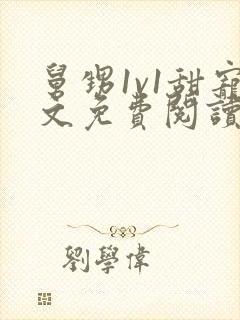 舅甥1v1甜寵
文免費閱讀
劉學偉